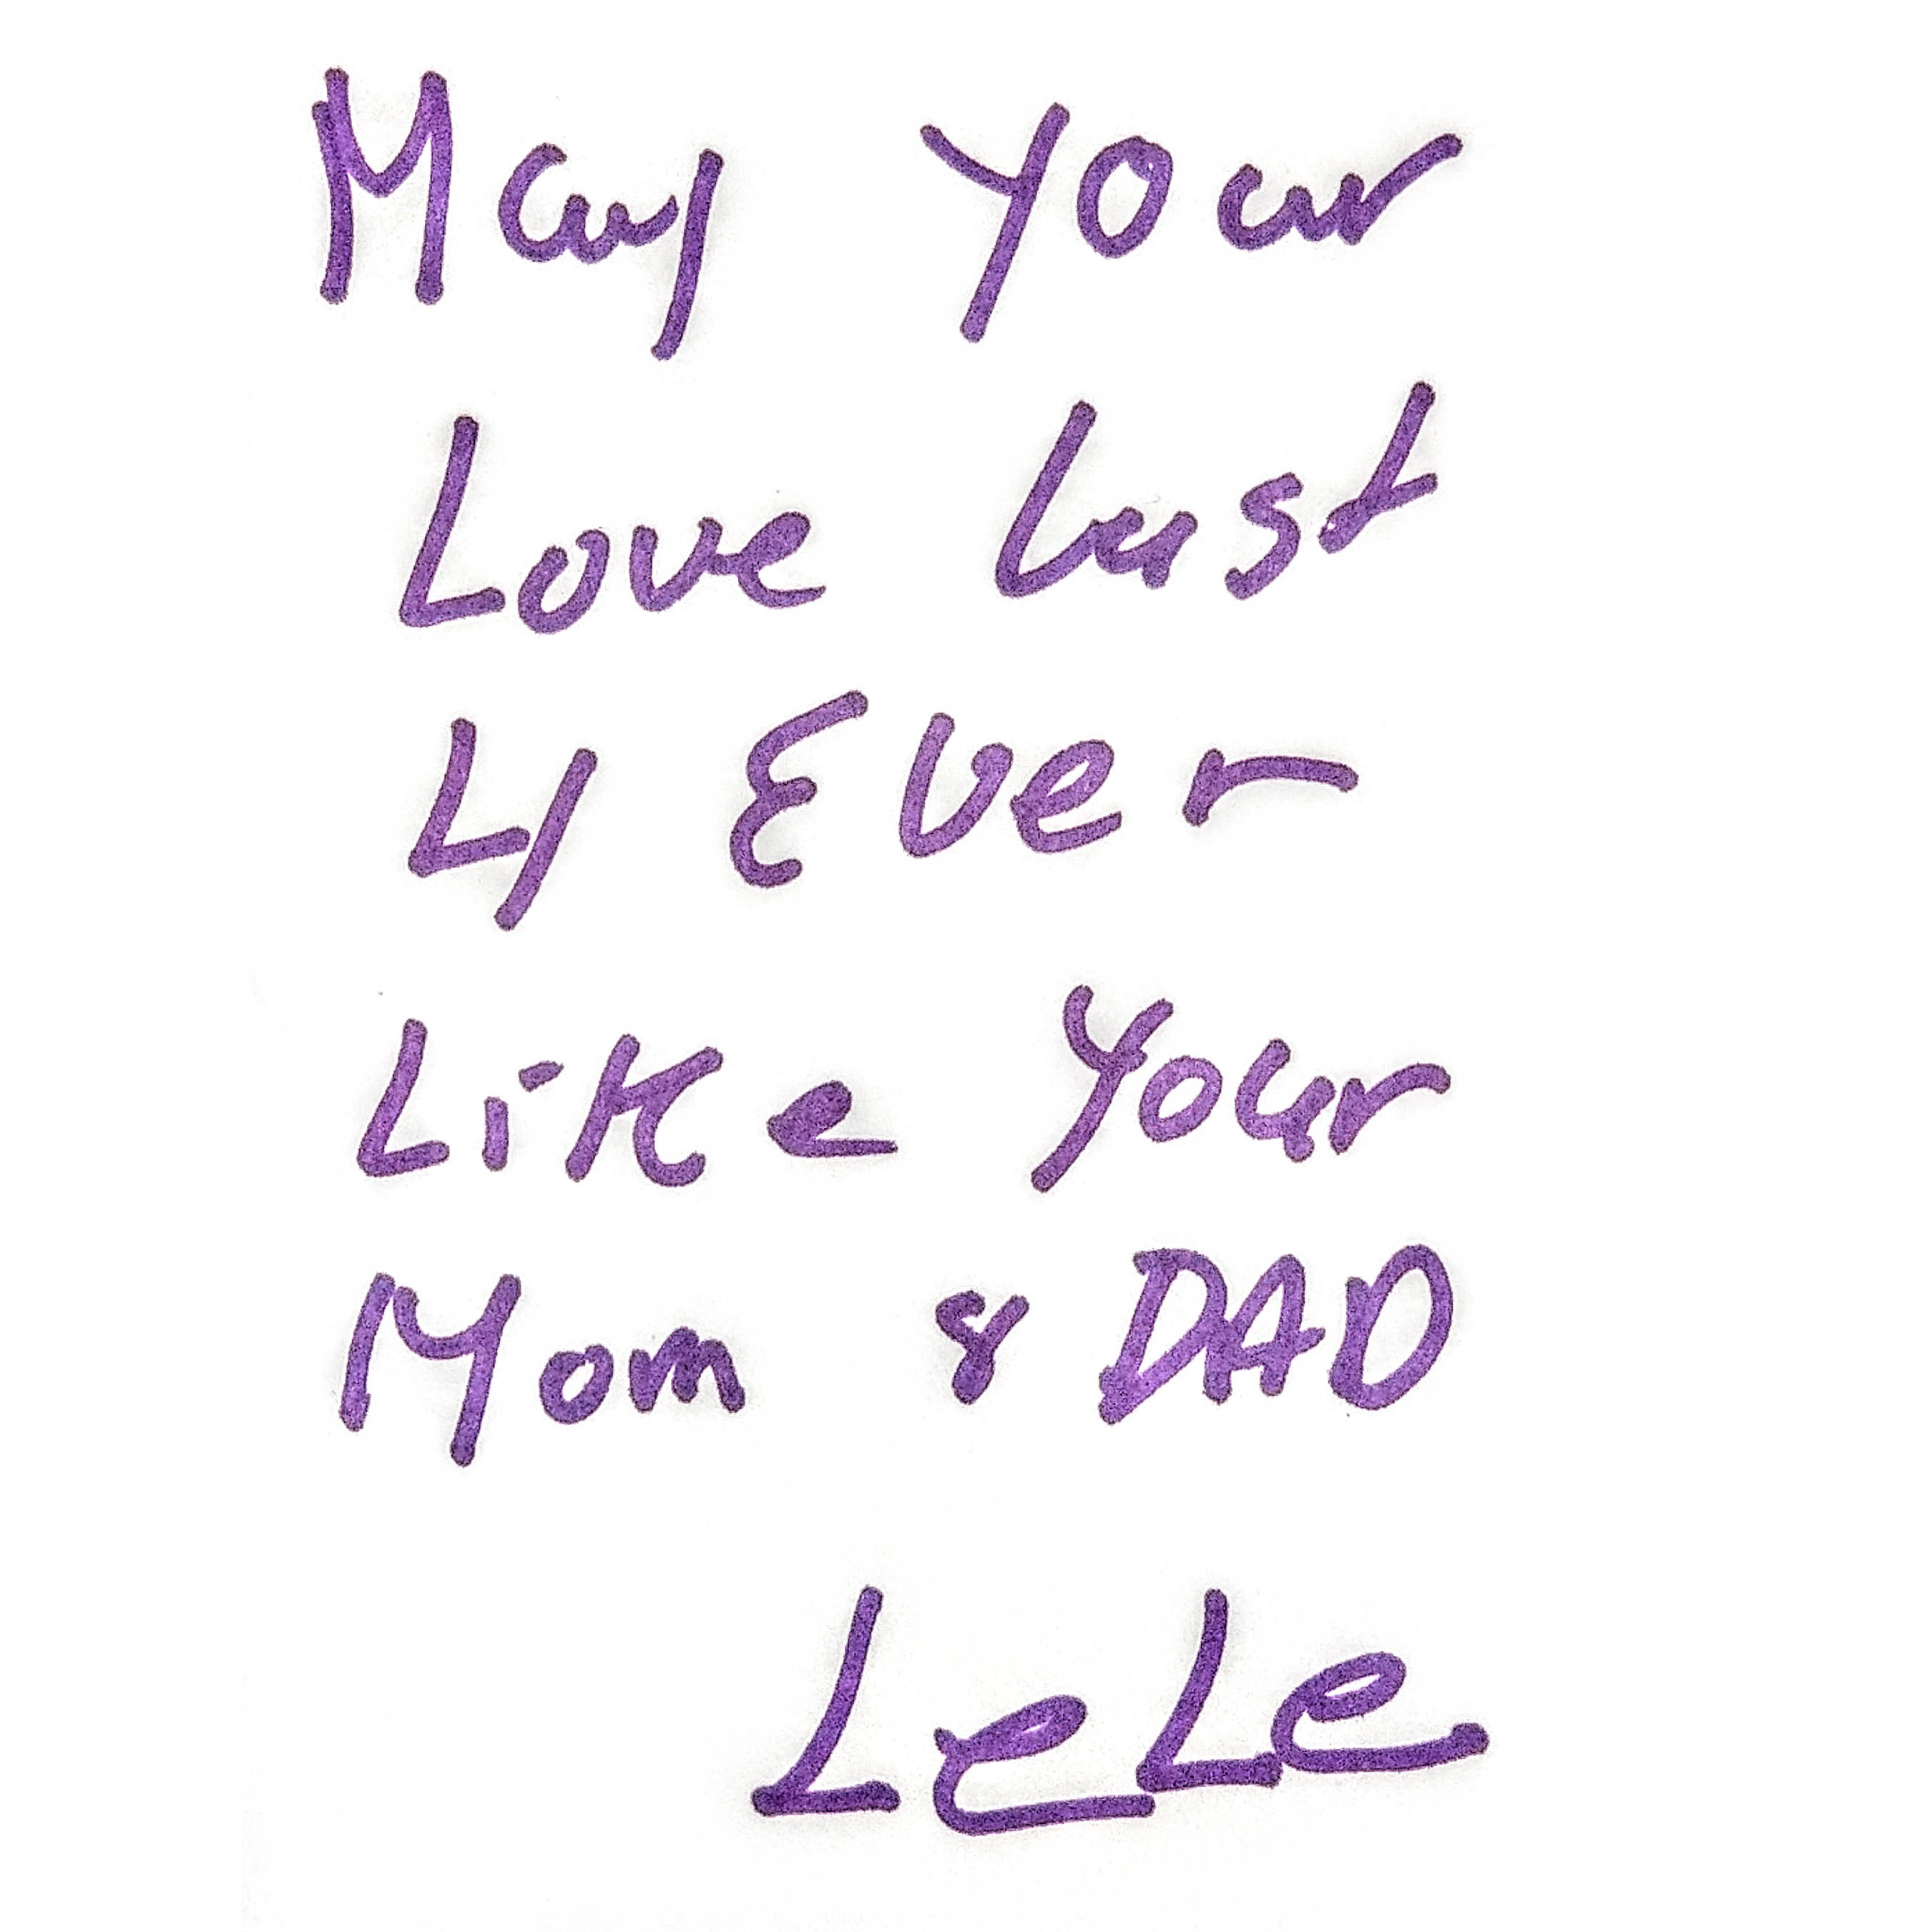 May Your
Love last
4 Ever
Like Your
Mom & DAD
LeLe